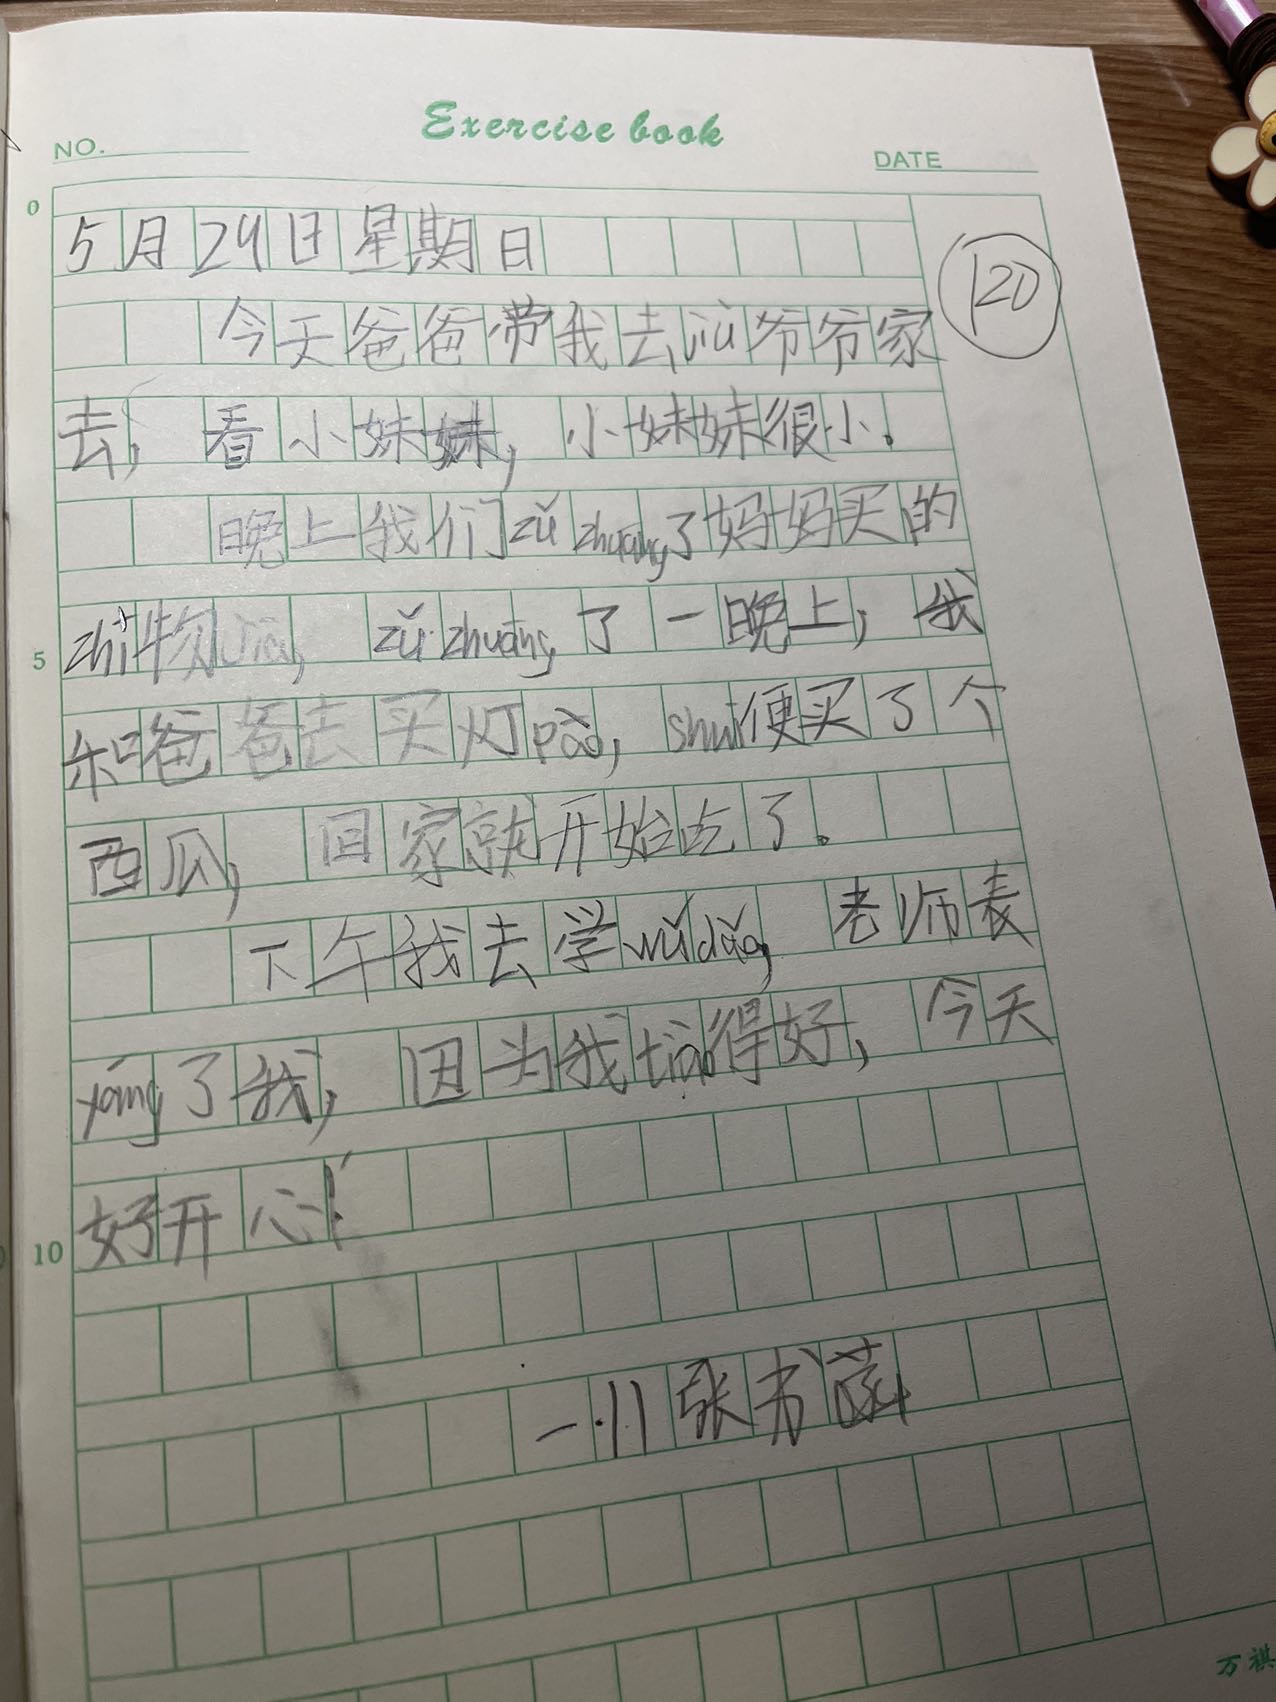 Exercise book
NO.
DATE
0
5月29日星期日
120
今天爸爸带我去jiù爷爷家
去，看小妹妹，小妹妹很小。
晚上我们zǔ zhuāng了妈妈买的
zhí物jià，zǔ zhuāng了一晚上，我
5
和爸爸去买灯pào，shuì便买了个
西瓜，回家就开始吃了。
下午我去学wǔ dǎo，老师表
yáng了我，因为我tiào得好，今天
好开心！
10
一.11张书菡
万祺